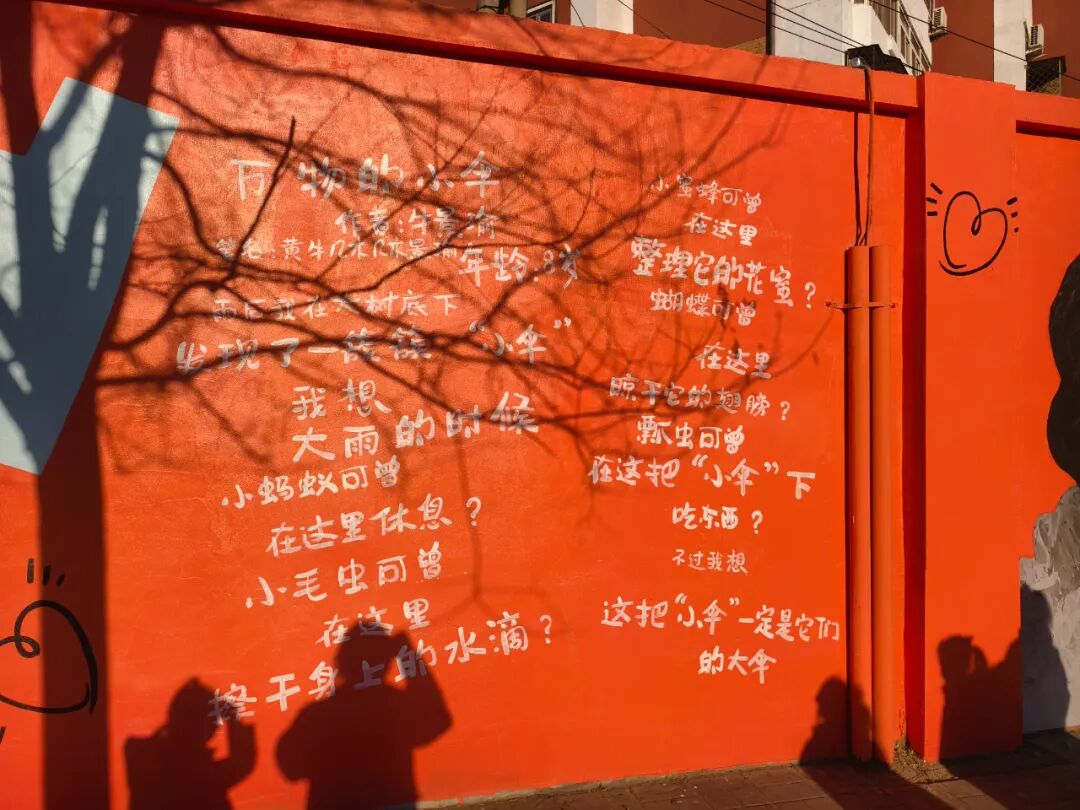 万物的小伞
作者:牛景瑜
笔名:黄牛几木
年龄:8岁
雨后我在大树底下
发现了一簇簇“小伞”
我想
大雨的时候
小蚂蚁可曾
在这里休息?
小毛虫可曾
在这里
擦干身上的水滴?
小蜜蜂可曾
在这里
整理它的花蜜?
蝴蝶可曾
在这里
晾干它的翅膀?
瓢虫可曾
在这把“小伞”下
吃东西?
不过我想
这把“小伞”一定是它们
的大伞